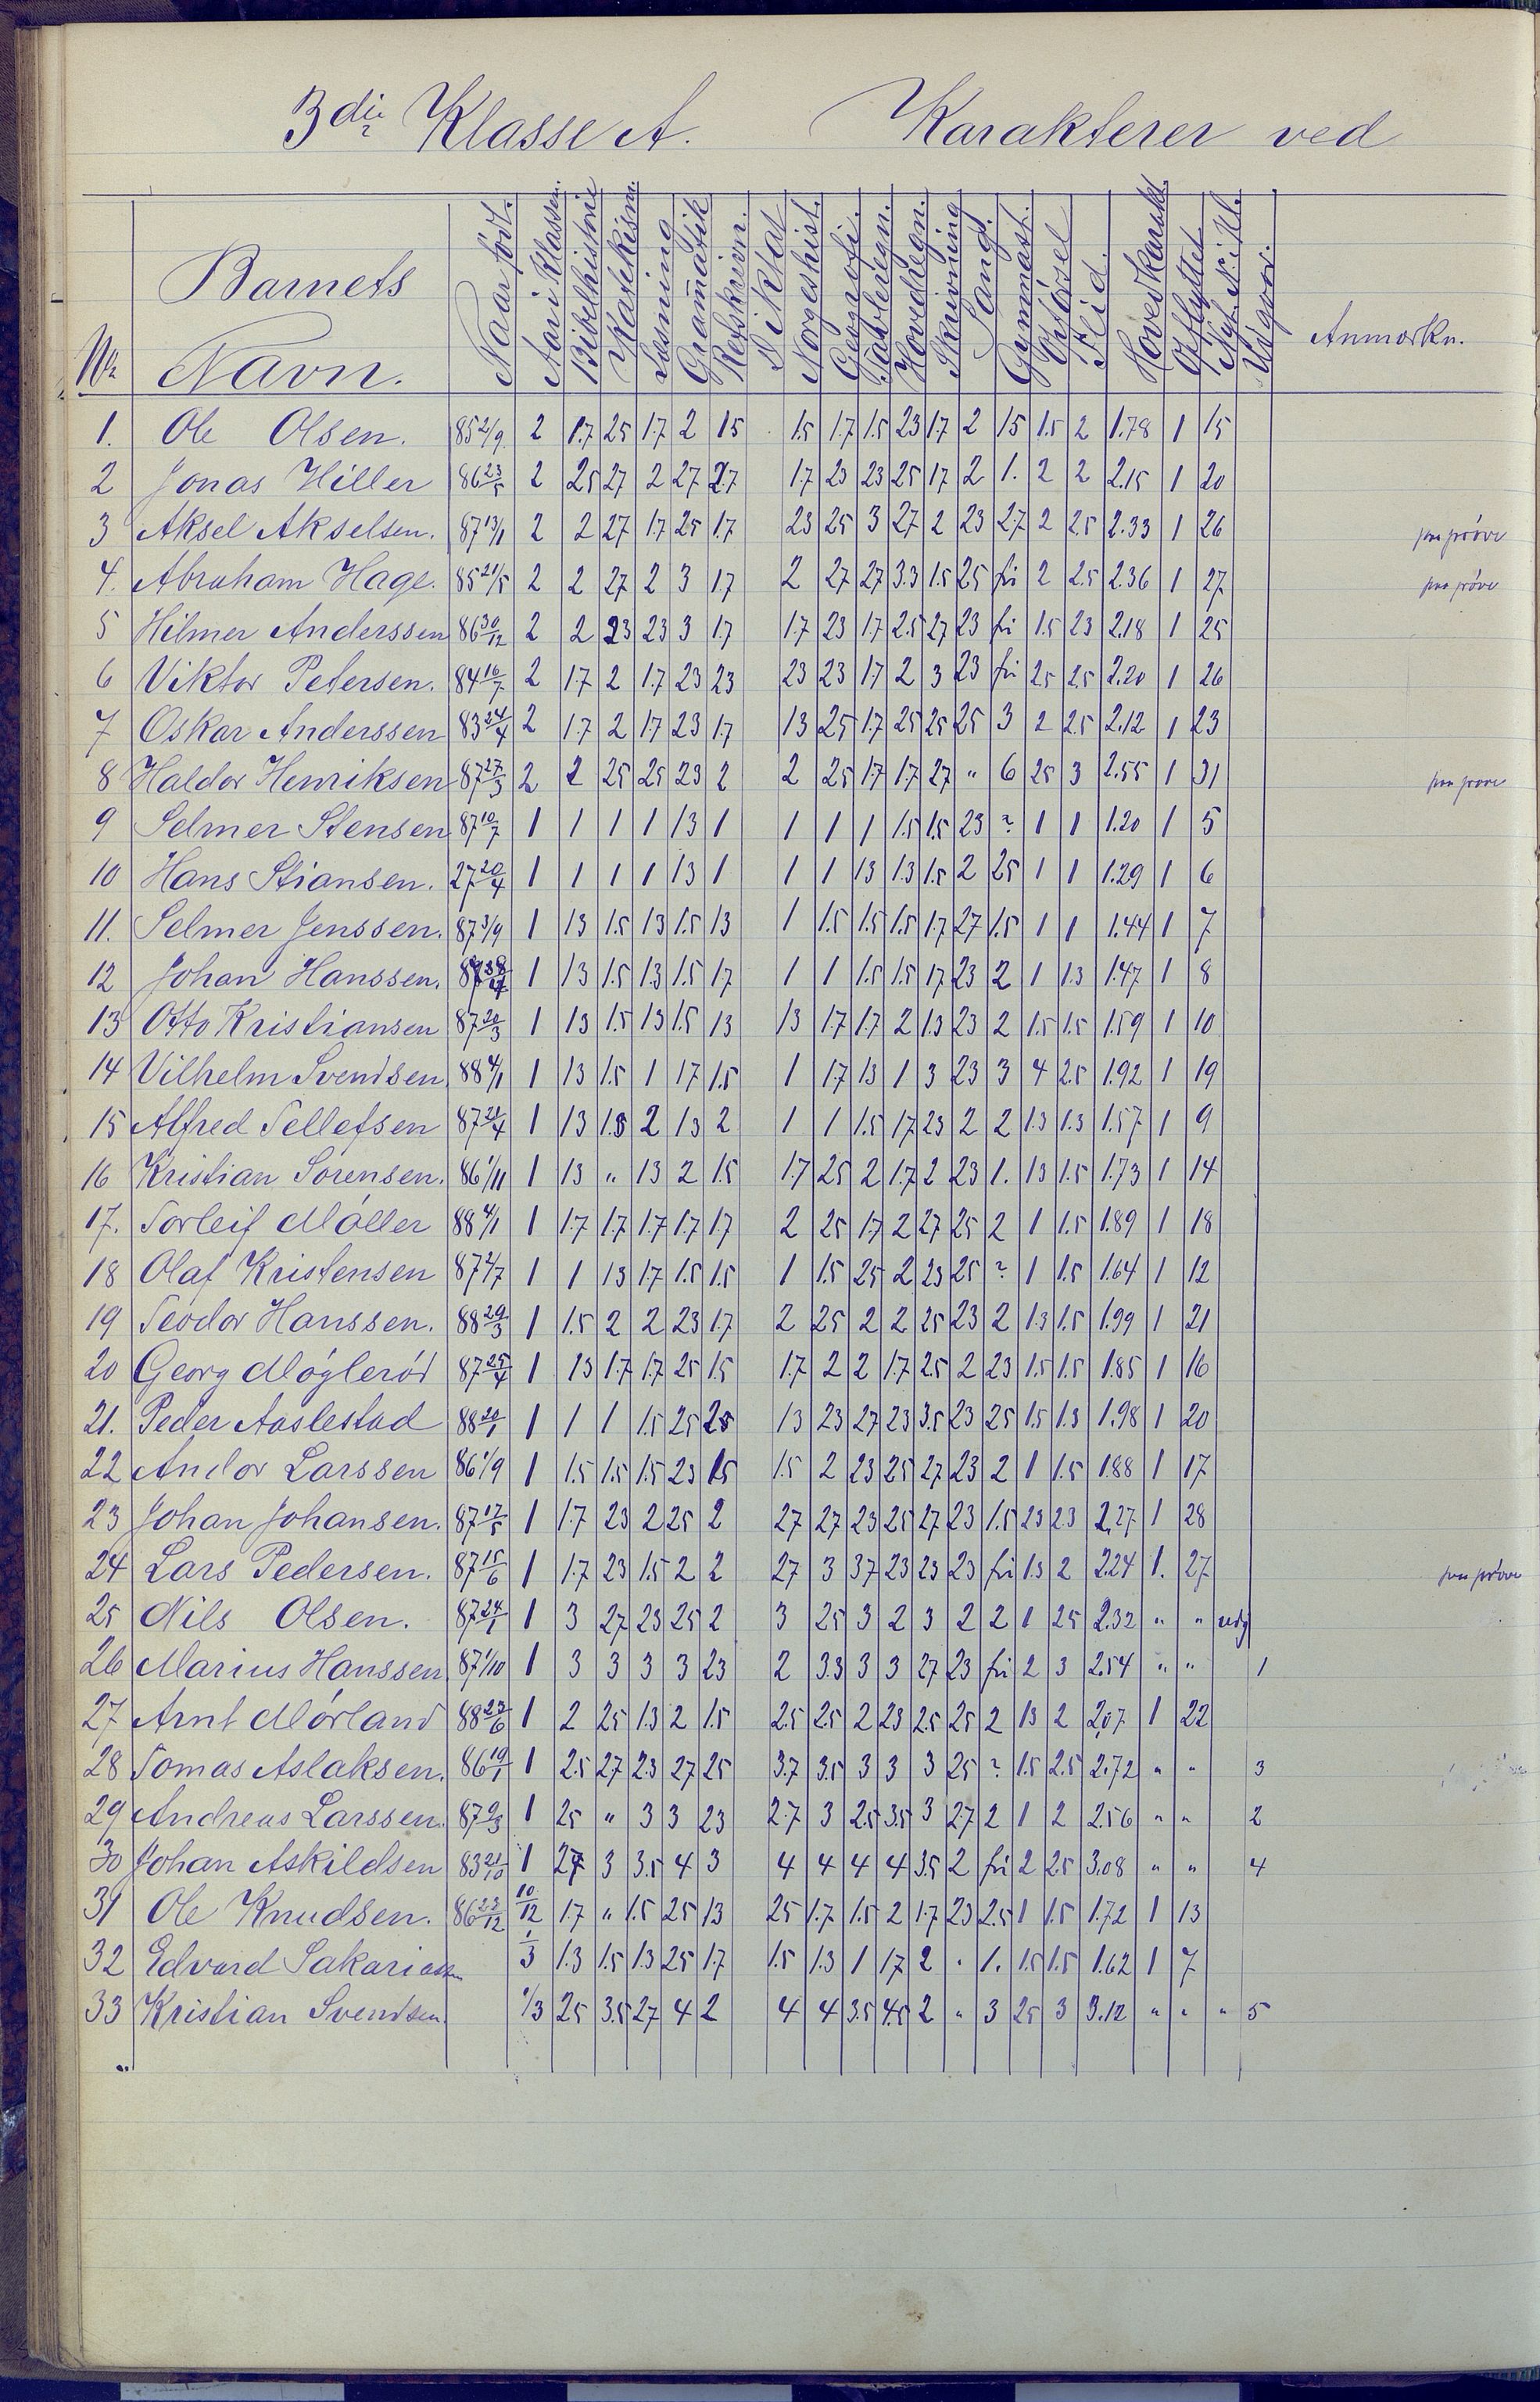 3die Klasse A. Karakterer ved
Nr Barnets Navn. Naar født. Aar i Klassen. Bibelhistorie Katekism. Læsning Gramatik Retskrivn. Diktat Norgeshist. Geografi. Tavleregn. Hovedregn. Skrivning Sang. Gymnast. Opførsel Flid. Hovedkarakt. Opflyttet Nyt Nr. i Kl. Udgaar. Anmærkn.
1. Ole Olsen. 85 2/9 2 1.7 25 1.7 2 15 1.5 1.7 1.5 23 1.7 2 15 1.5 2 1.78 1 15
2 Jonas Hiller 86 23/5 2 25 27 2 27 27 1.7 23 23 25 17 2 1. 2 2 2.15 1 20
3 Aksel Akselsen. 87 13/1 2 2 27 1.7 25 1.7 23 25 3 27 2 23 27 2 25 2.33 1 26 paa prøve
4. Abraham Hage. 85 21/5 2 2 27 2 3 1.7 2 27 27 3.3 1.5 25 fri 2 2.5 2.36 1 27 paa prøve
5 Hilmer Anderssen 86 30/12 2 2 23 23 3 1.7 1.7 23 1.7 2.5 27 23 fri 1.5 23 2.18 1 25
6 Viktor Petersen. 84 16/7 2 1.7 2 1.7 23 23 23 23 1.7 2 3 23 fri 25 25 2.20 1 26
7 Oskar Anderssen 83 24/4 2 1.7 2 1.7 23 1.7 13 25 1.7 25 25 25 3 2 2.5 2.12 1 23
8 Haldor Henriksen 87 27/3 2 2 25 25 23 2 2 25 1.7 1.7 27 " 6 25 3 2.55 1 31 paa prøve
9 Selmer Stensen 87 10/7 1 1 1 1 13 1 1 1 1 1.5 1.5 23 ? 1 1 1.20 1 5
10 Hans Stiansen. 27 20/4 1 1 1 1 13 1 1 1 13 1.3 1.5 2 25 1 1 1.29 1 6
11. Selmer Jenssen. 87 3/9 1 13 1.5 13 1.5 13 1 1.5 1.5 1.5 1.7 27 1.5 1 1 1.44 1 7
12 Johan Hanssen. 1 13 1.5 1.3 1.5 17 1 1 1.5 1.5 17 23 2 1 1.3 1.47 1 8
13 Otto Kristiansen 87 20/3 1 13 1.5 13 1.5 13 13 1.7 1.7 2 1.3 23 2 1.5 1.5 1.59 1 10
14 Vilhelm Svendsen 88 4/1 1 13 1.5 1 17 1.5 1 1.7 13 1 3 23 3 4 2.5 1.92 1 19
15 Alfred Tellefsen 87 21/4 1 13 1.8 2 13 2 1 1 1.5 17 23 2 2 1.3 1.3 1.57 1 9
16 Kristian Sørensen. 86 1/11 1 13 " 13 2 1.5 1.7 25 2 1.7 2 23 1. 13 1.5 1.73 1 14
17. Torleif Møller 88 4/1 1 1.7 1.7 1.7 1.7 1.7 2 25 1.7 2 27 25 2 1 1.5 1.89 1 18
18 Olaf Kristensen 87 2/7 1 1 13 1.7 1.5 1.5 1 1.5 25 2 23 25 ? 1 1.5 1.64 1 12
19 Teodor Hanssen. 88 29/3 1 1.5 2 2 23 1.7 2 25 2 2 25 23 2 1.3 1.5 1.99 1 21
20 Georg Møglerød 87 25/4 1 13 1.7 1.7 25 1.5 1.7 2 2 1.7 2.5 2 23 1.5 1.5 1.85 1 16
21. Peder Aaslestad 88 20/1 1 1 1 1.5 25 25 13 23 27 23 3.5 23 25 1.5 1.3 1.98 1 20
22 Andor Larssen 86 1/9 1 1.5 1.5 1.5 23 15 1.5 2 23 25 27 23 2 1 1.5 1.88 1 17
23 Johan Johansen. 87 17/5 1 1.7 23 2 25 2 27 27 23 25 27 23 1.5 23 23 2.27 1 28
24 Lars Pedersen. 87 15/6 1 1.7 23 1.5 2 2 27 3 37 23 23 23 fri 1.3 2 2.24 1. 27 paa prøve
25 Nils Olsen. 87 24/1 1 3 27 23 25 2 3 25 3 2 3 2 2 1 25 2.32 " " udg
26 Marius Hanssen 87 1/10 1 3 3 3 3 23 2 3.3 3 3 27 23 fri 2 3 2.54 " " 1
27 Arnt Mørland 88 23/6 1 2 25 1.3 2 1.5 2.5 2.5 2 23 2.5 25 2 13 2 2.07 1 22
28 Tomas Aslaksen. 86 19/1 1 2.5 27 2.3 27 25 3.7 3.5 3 3 3 25 ? 1.5 2.5 2.72 " " 3
29 Andreas Larssen. 87 9/3 1 25 " 3 3 23 2.7 3 2.5 3.5 3 27 2 1 2 2.56 " " 2
30 Johan Askildsen 83 21/10 1 27 3 3.5 4 3 4 4 4 4 3.5 2 fri 2 25 3.08 " " 4
31 Ole Knudsen. 86 23/12 10/12 1.7 " 1.5 25 13 25 1.7 1.5 2 1.7 23 2.5 1 1.5 1.72 1 13
32 Edvard Sakariassen 1/3 1.3 1.5 1.3 25 1.7 1.5 1.3 1 17 2 . 1. 1.5 1.5 1.62 1 7
33 Kristian Svendsen. 1/3 25 3.5 27 4 2 4 4 3.5 4.5 2 " 3 25 3 3.12 " " " 5
"